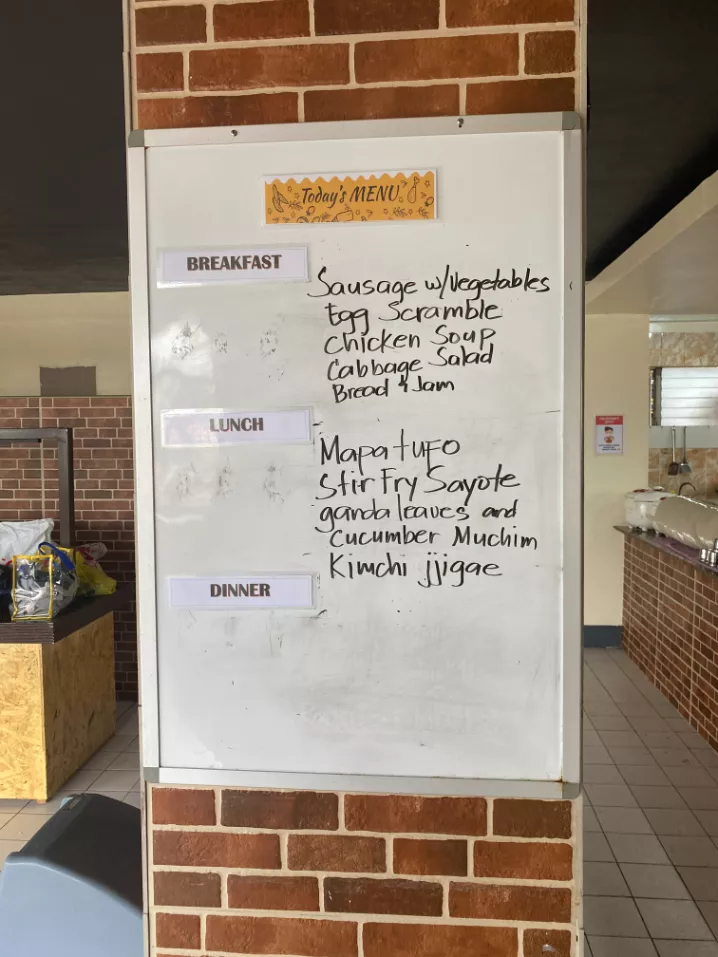 Today's MENU
BREAKFAST
Sausage w/Vegetables
Egg Scramble
Chicken Soup
Cabbage Salad
Bread & Jam
LUNCH
Mapa tufo
Stir Fry Sayote
ganda leaves and
Cucumber Muchim
Kimchi jjigae
DINNER